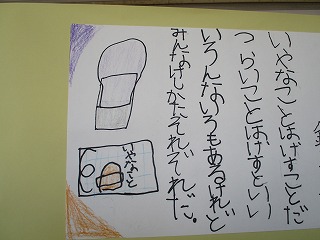 いやなことはけすことだ
つらいことはけすといい
いろんないろもあるけれど
みんなけしかたそれぞれだ。
いやなこと